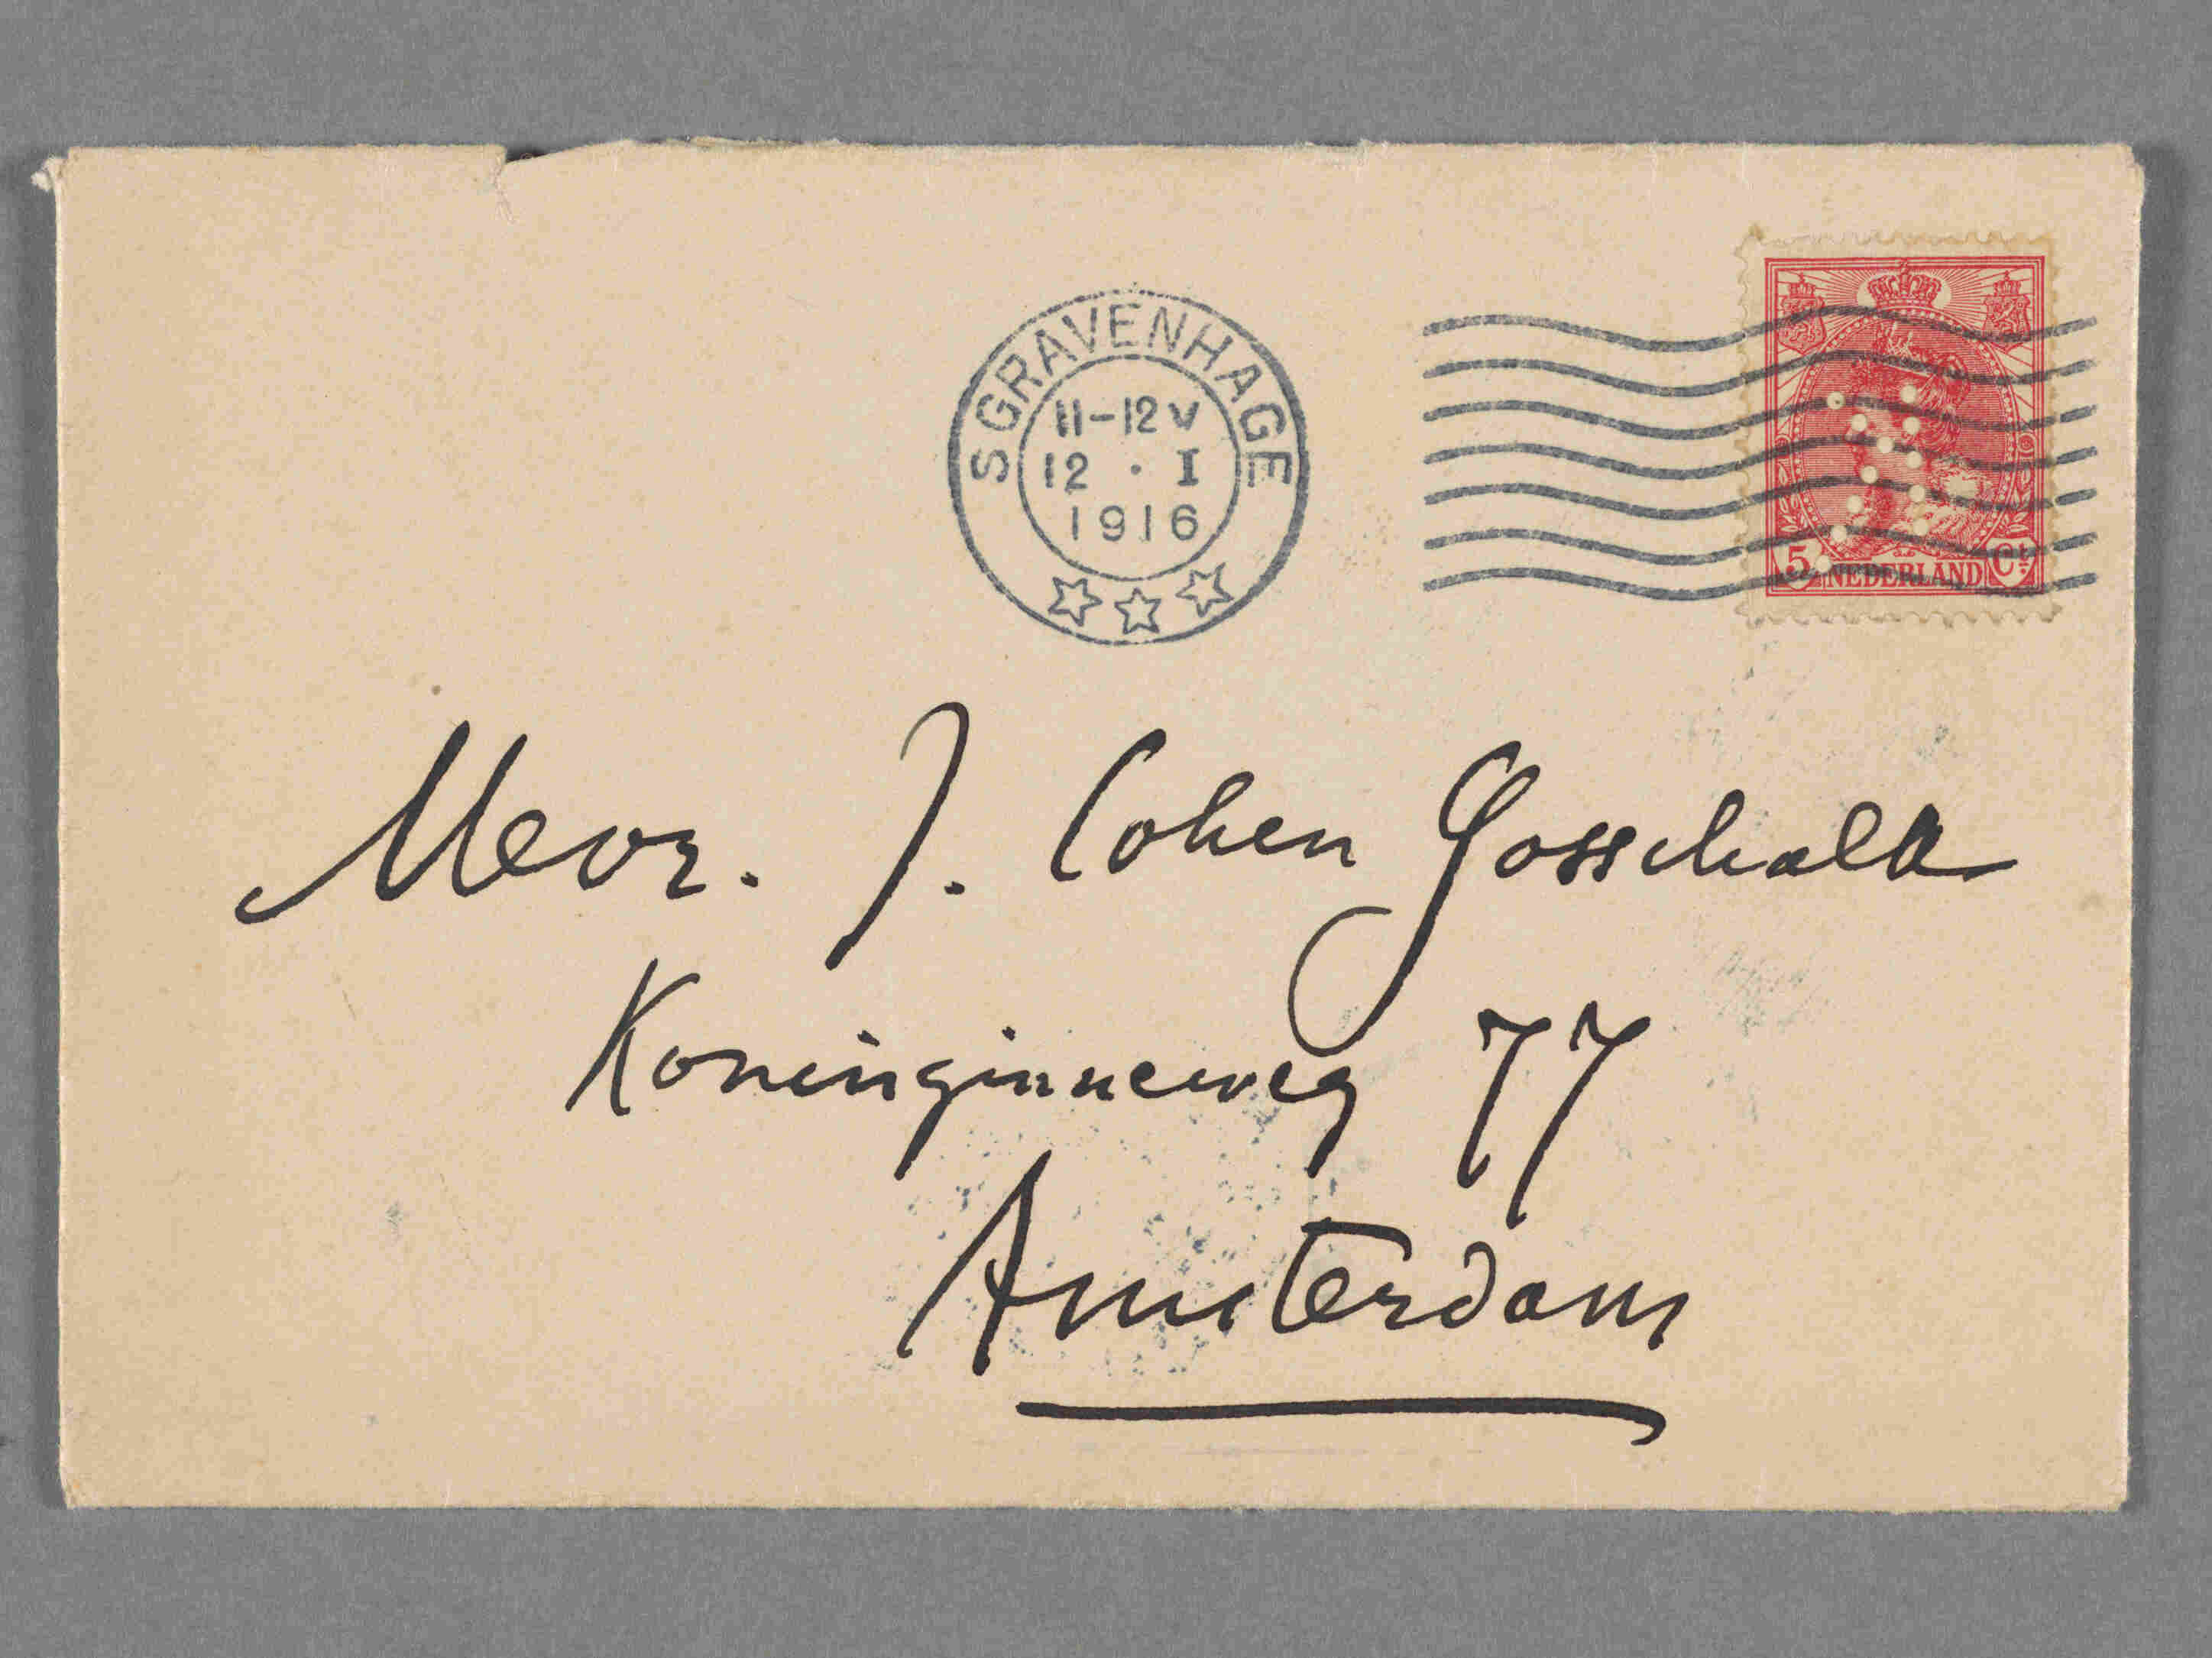 SGRAVENHAGE
11-12 V
12 · I
1916
5 NEDERLAND Ct
Mevr. J. Cohen Gosschalk
Koninginneweg 77
Amsterdam